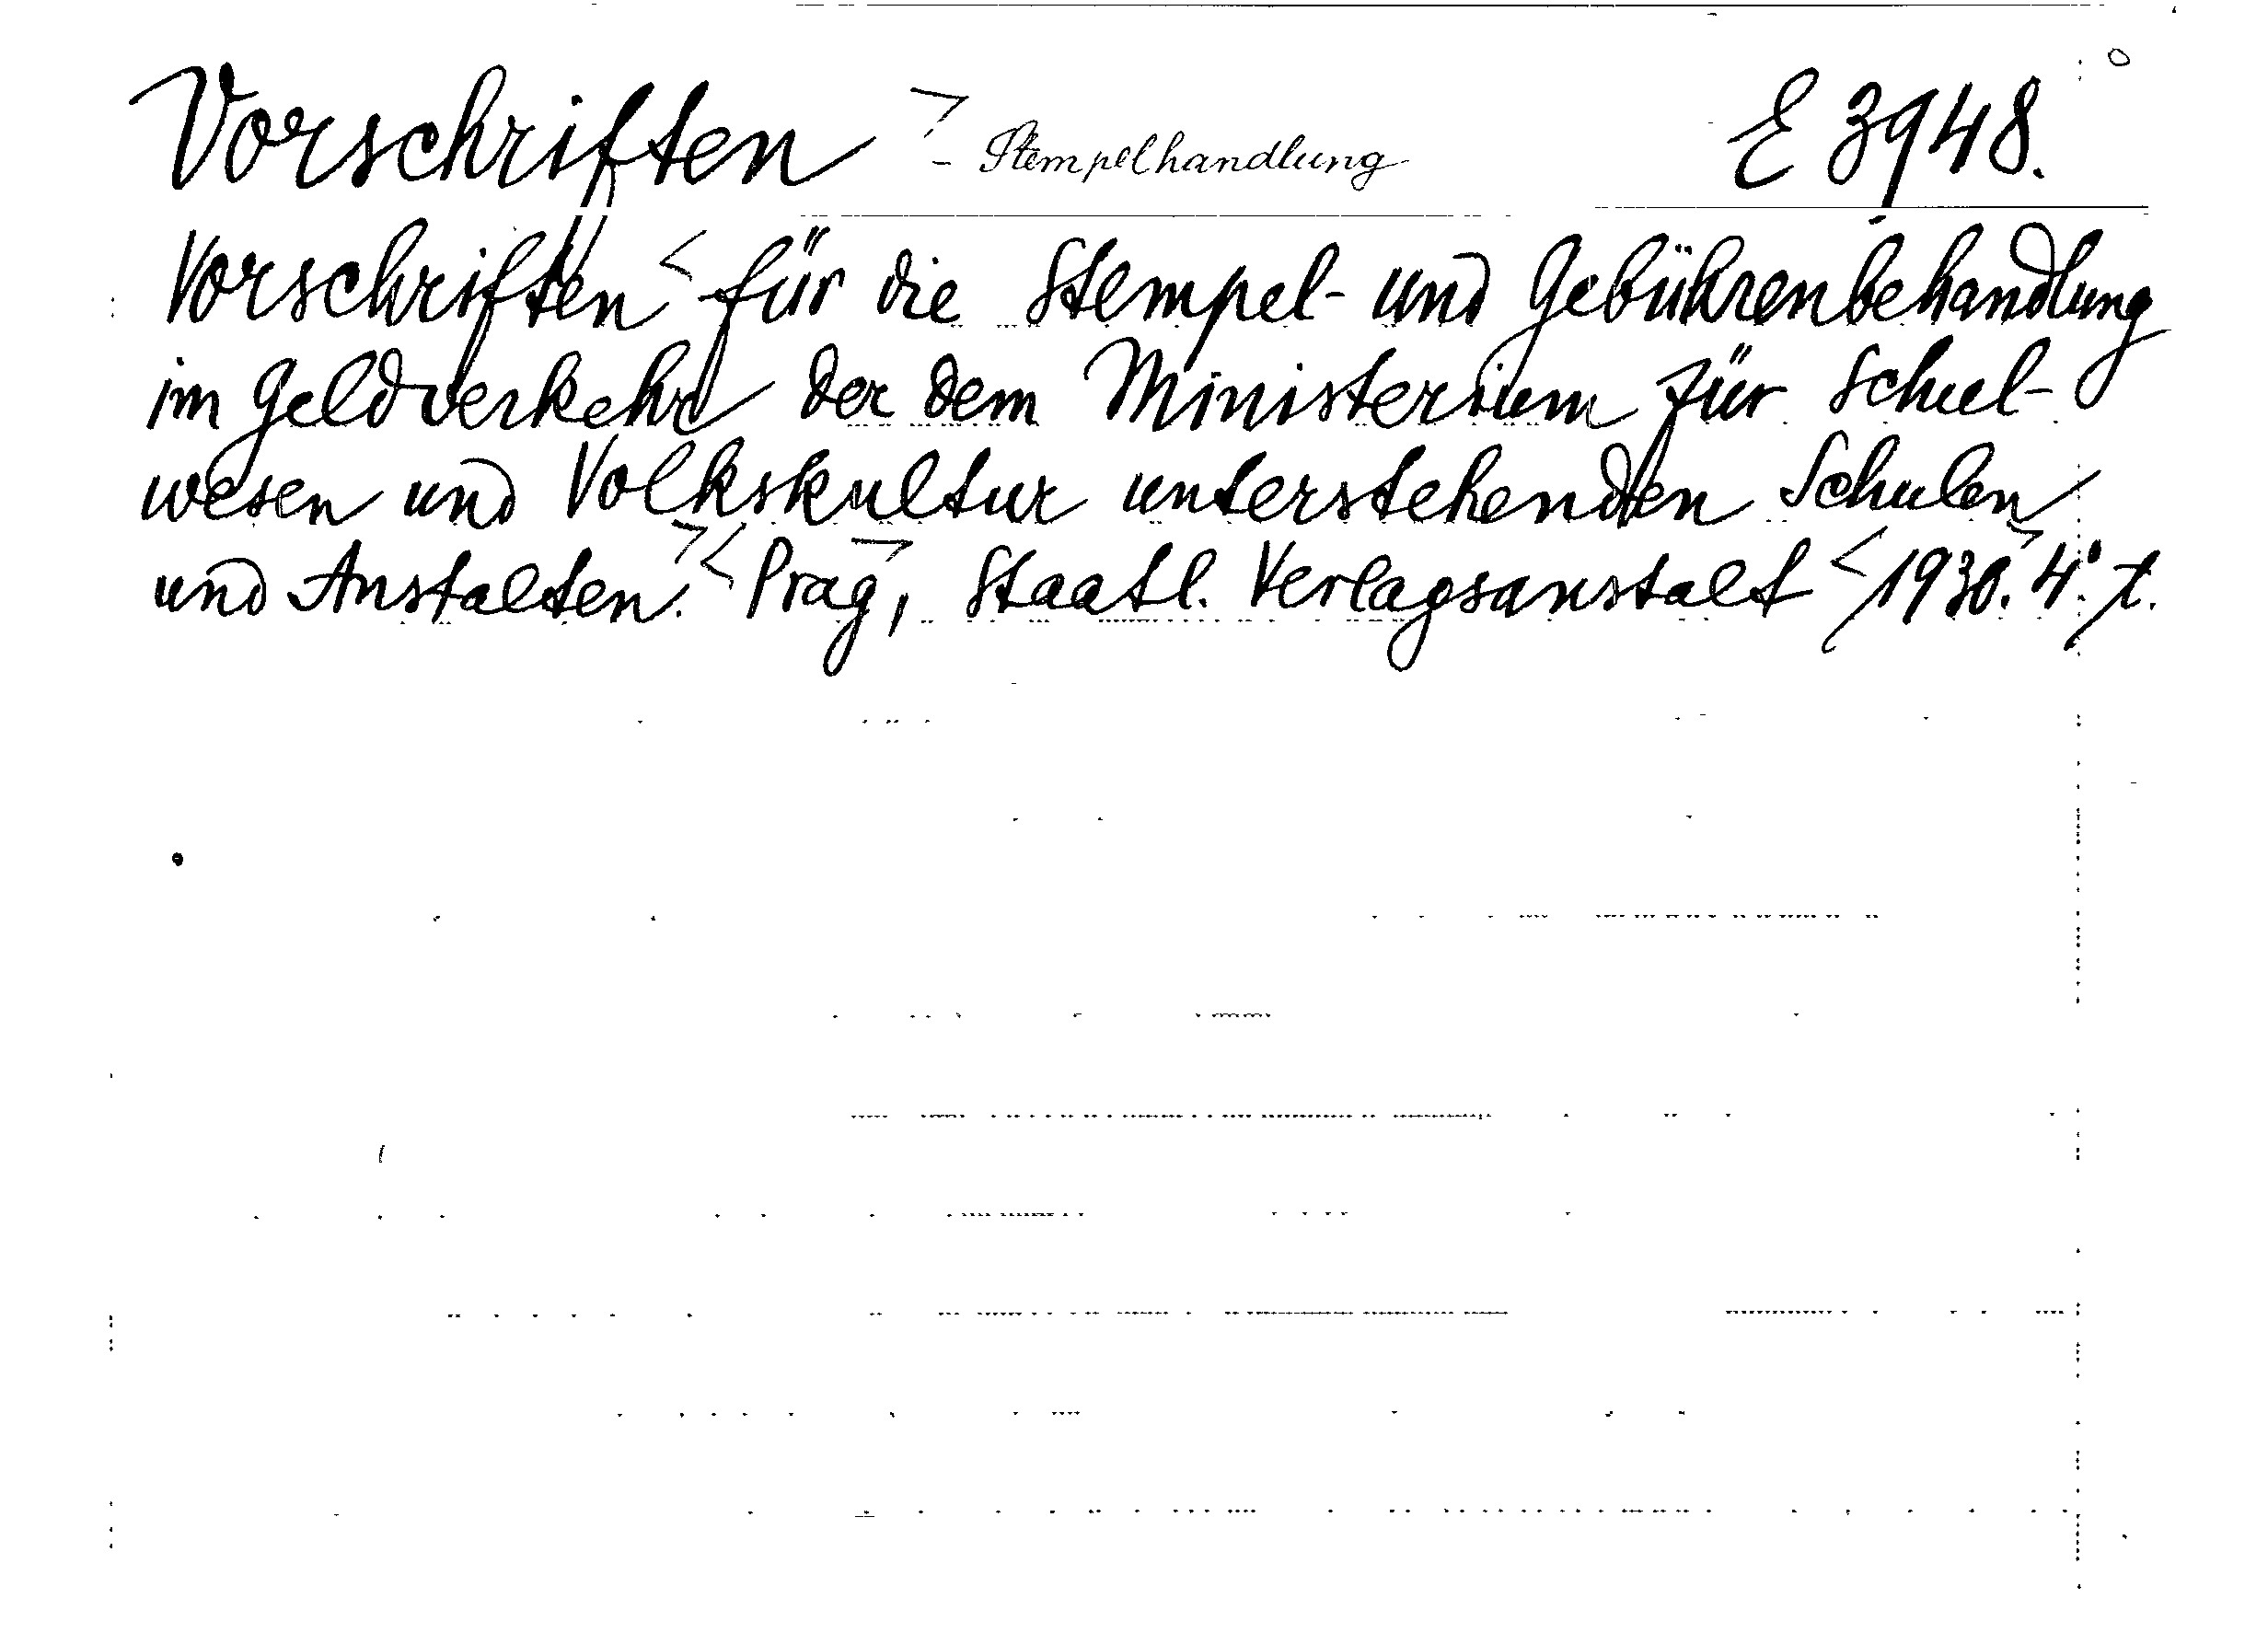 Vorschriften - Stempelhandlung E 3948.
Vorschriften für die Stempel- und Gebührenbehandlung
im Geldverkehr der dem Ministerium für Schul-
wesen und Volkskultur unterstehenden Schulen
und Anstalten. Prag, Staatl. Verlagsanstalt 1930. 4°. t.